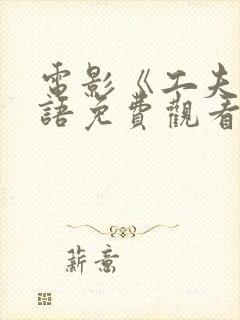 電影《工夫
語免費觀看
薪意